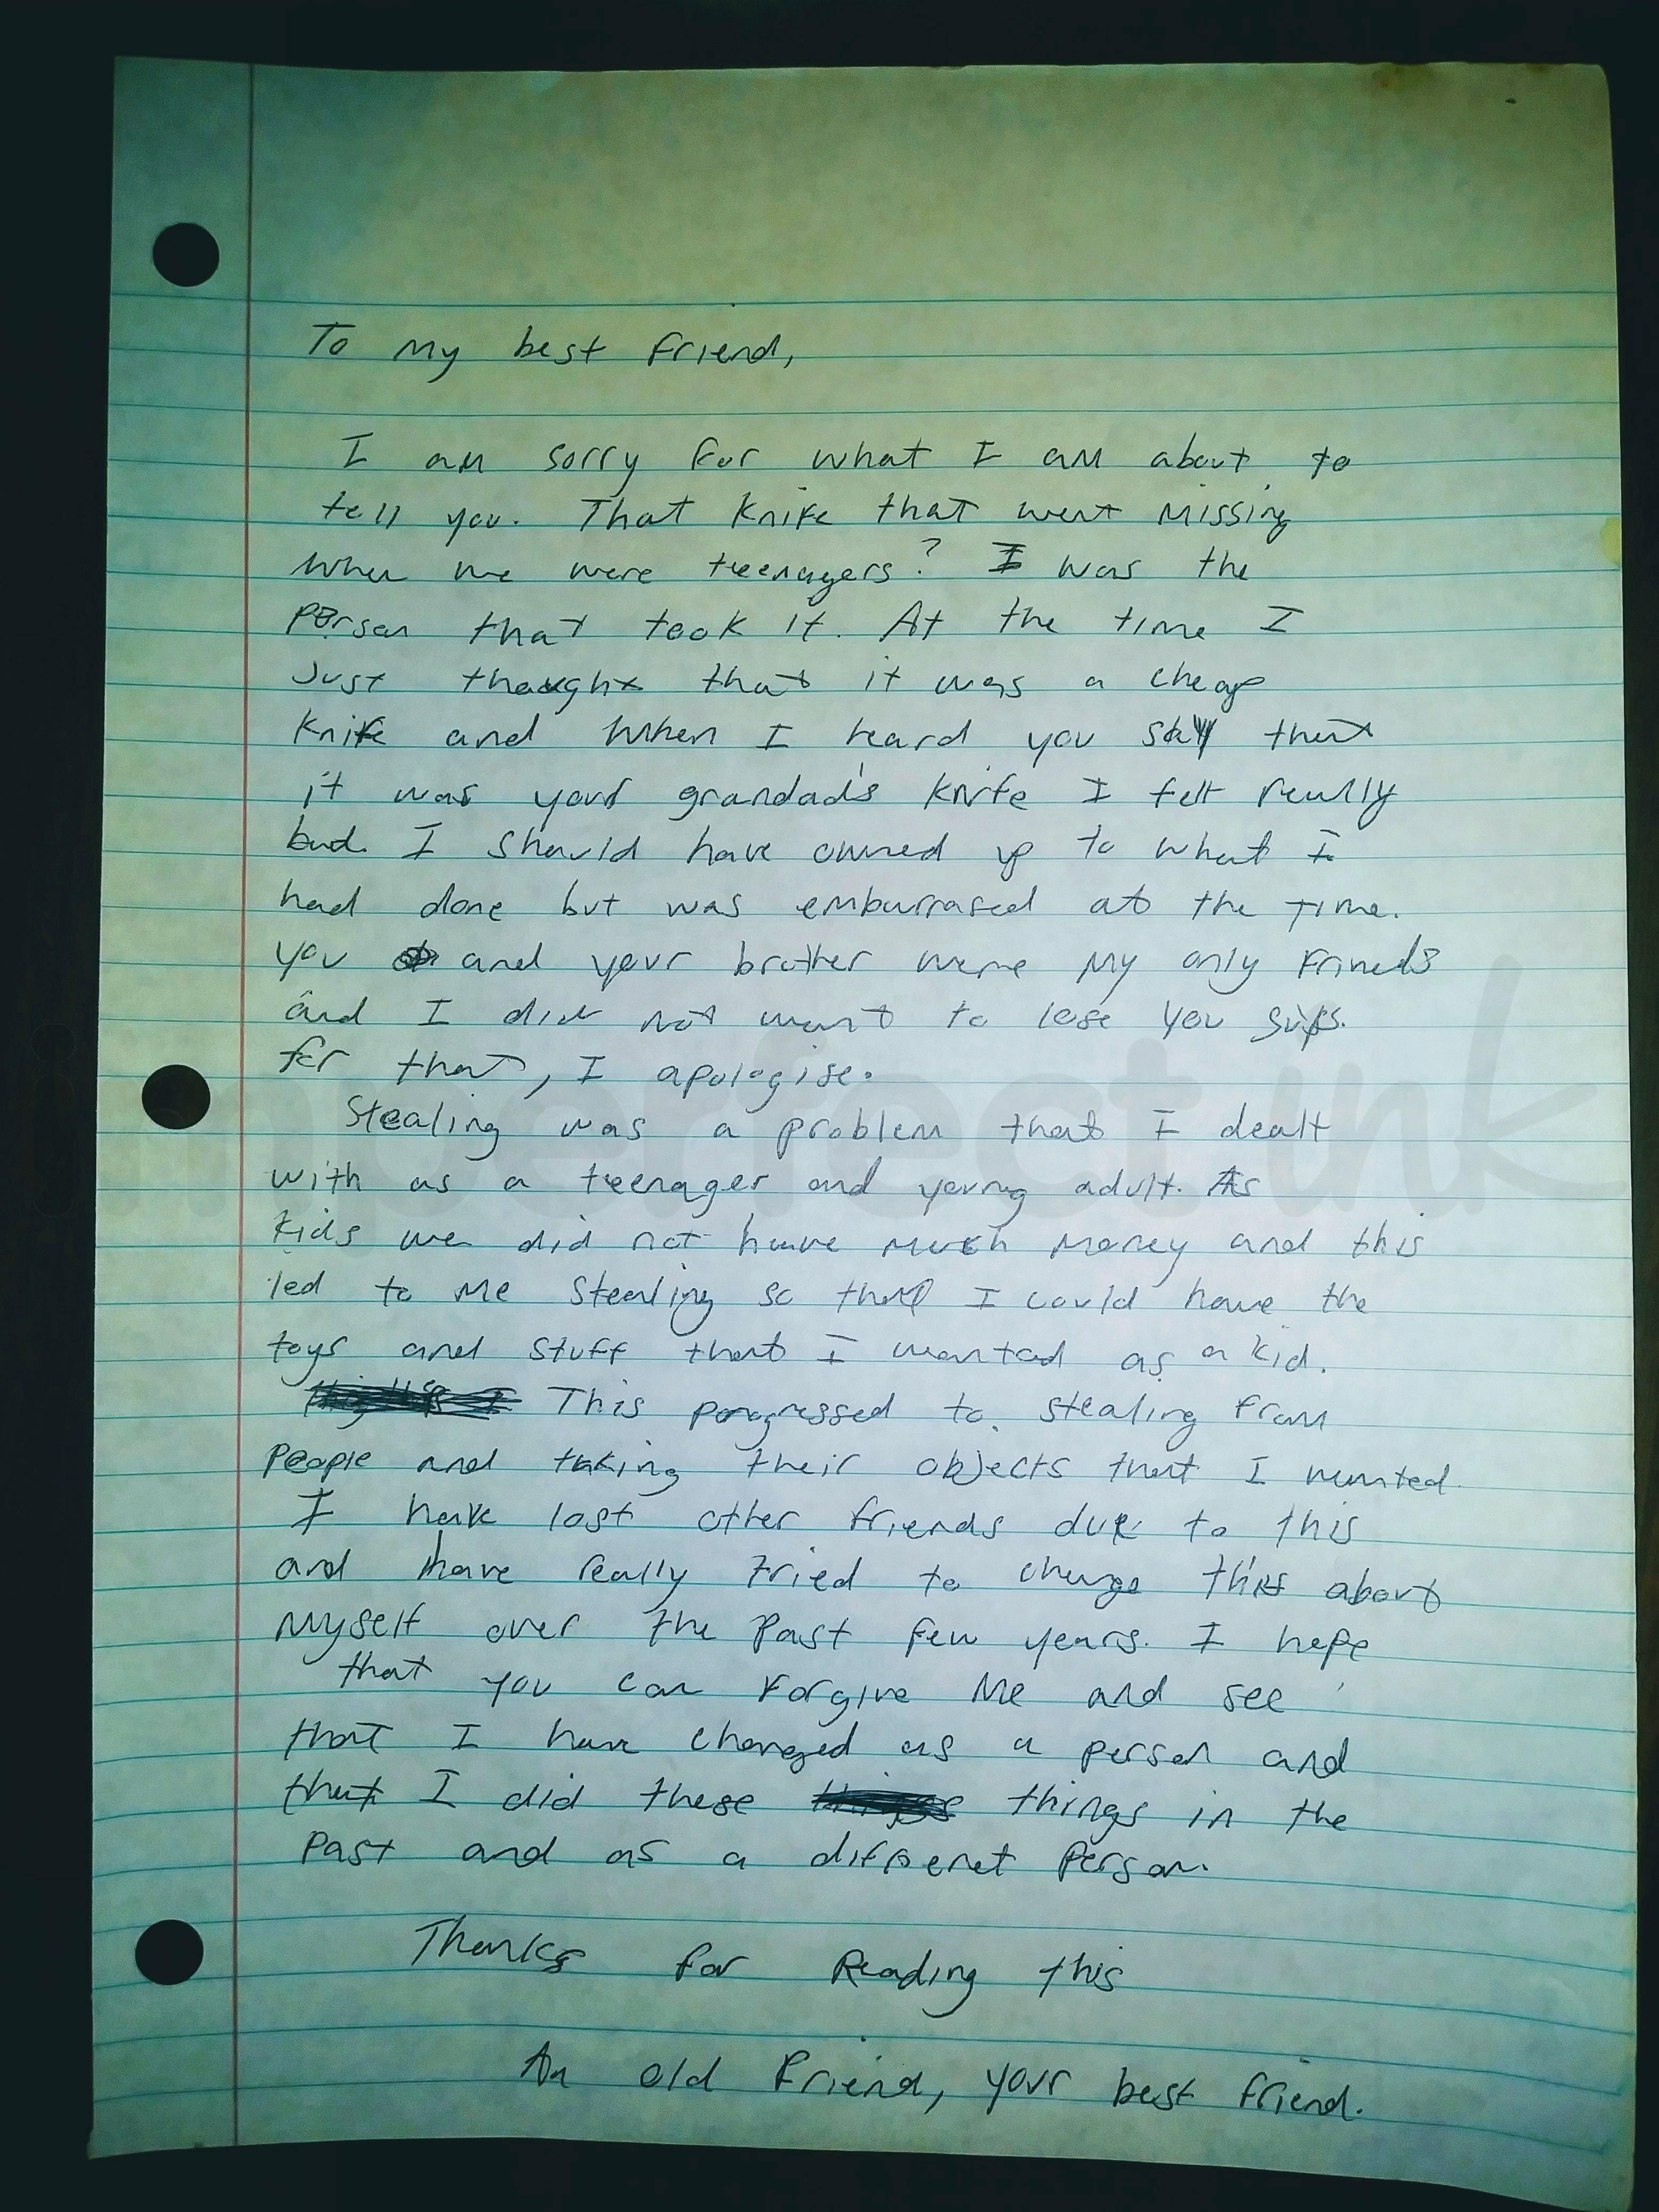 To my best friend,
I am sorry for what I am about to
tell you. That knife that went missing
when we were teenagers? I was the
person that took it. At the time I
Just thought that it was a cheap
knife and when I heard you say that
it was your grandad's knife I felt really
bad. I should have owned up to what I
had done but was embarrased at the time.
You and your brother were my only frineds
and I did not want to lose you guys.
for that, I apologise.
Stealing was a problem that I dealt
with as a teenager and young adult. As
kids we did not have much money and this
led to me stealing so that I could have the
toys and stuff that I wanted as a kid.
This porogressed to stealing from
people and taking their objects that I wanted.
I have lost other friends due to this
and have really tried to change this about
myself over the past few years. I hope
that you can forgive me and see
that I have changed as a person and
that I did these things in the
past and as a different person.
Thanks for Reading this
An old friend, your best friend.
imperfect ink